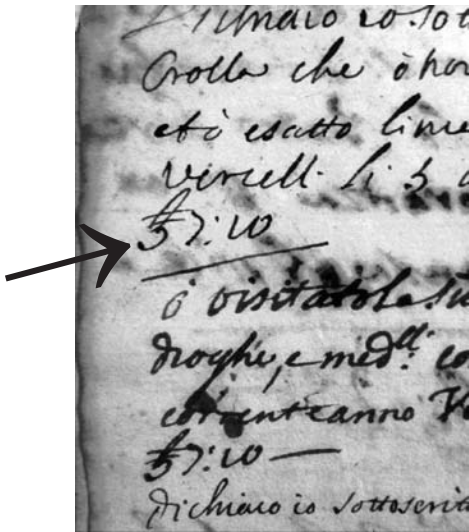 Dichiaro io sot
Crolla che ò
et ò esatto
Vercell. li 5
₶ 7:10
ò visitato le
droghe, e med.
corrente anno
₶ 7:10
dichiaro io sottoscrit